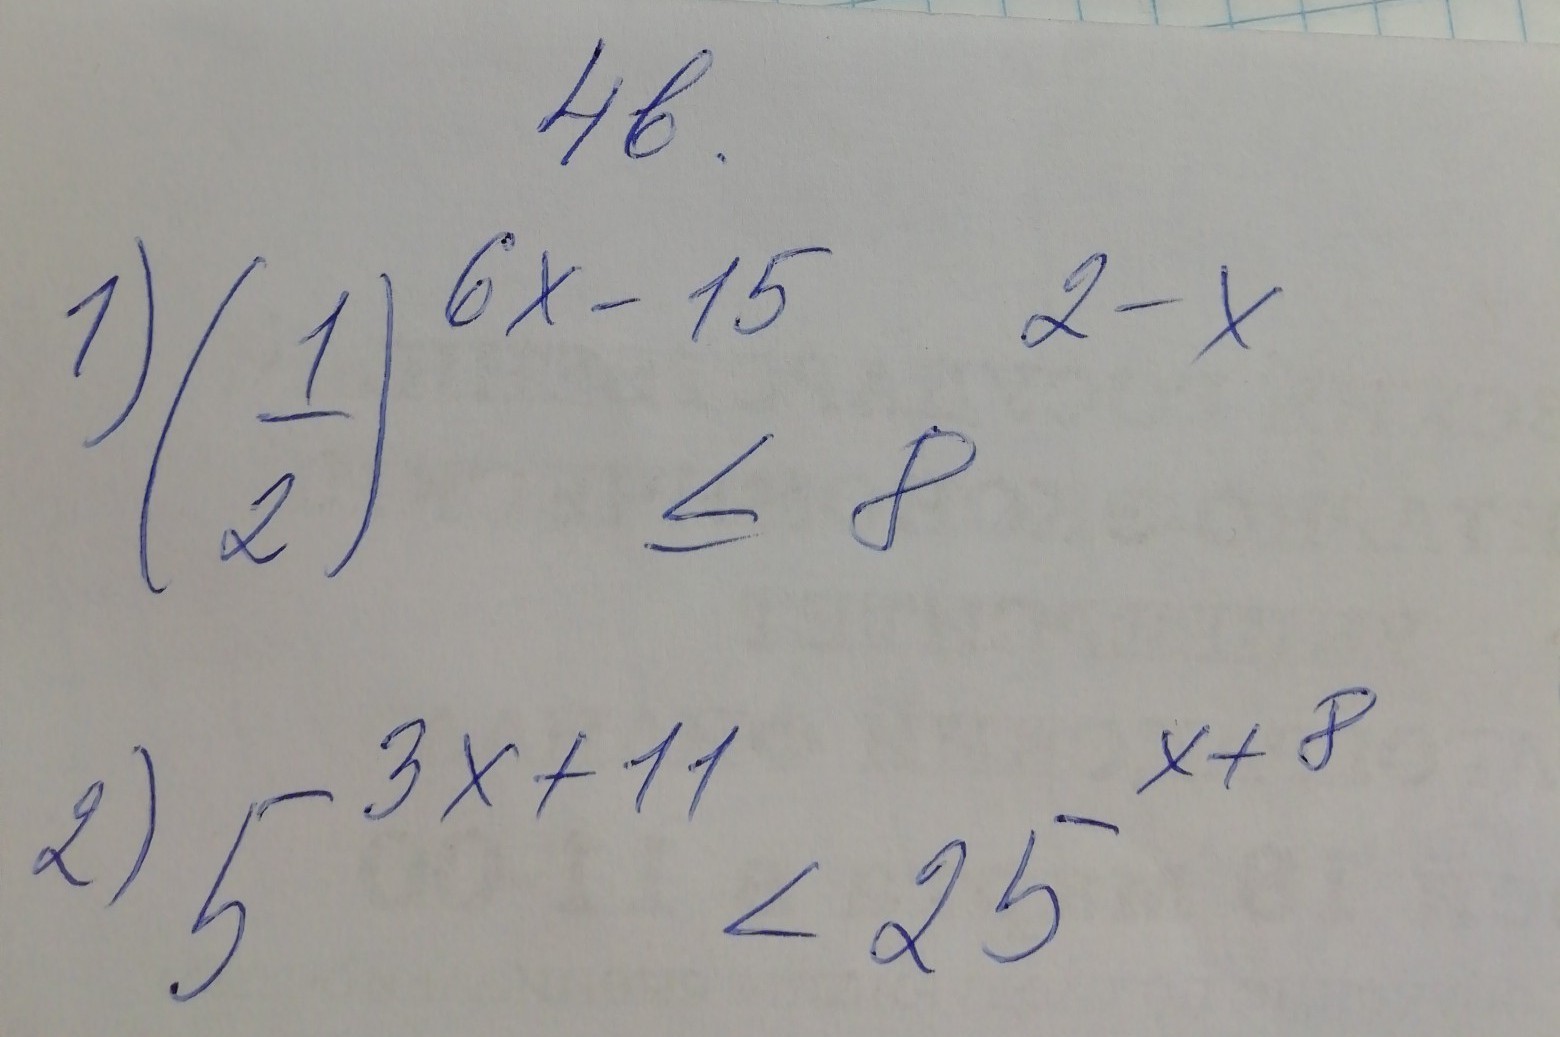 4в.
1) (1/2)^(6x-15) ≤ 8^(2-x)
2) 5^(3x+11) < 25^(x+8)